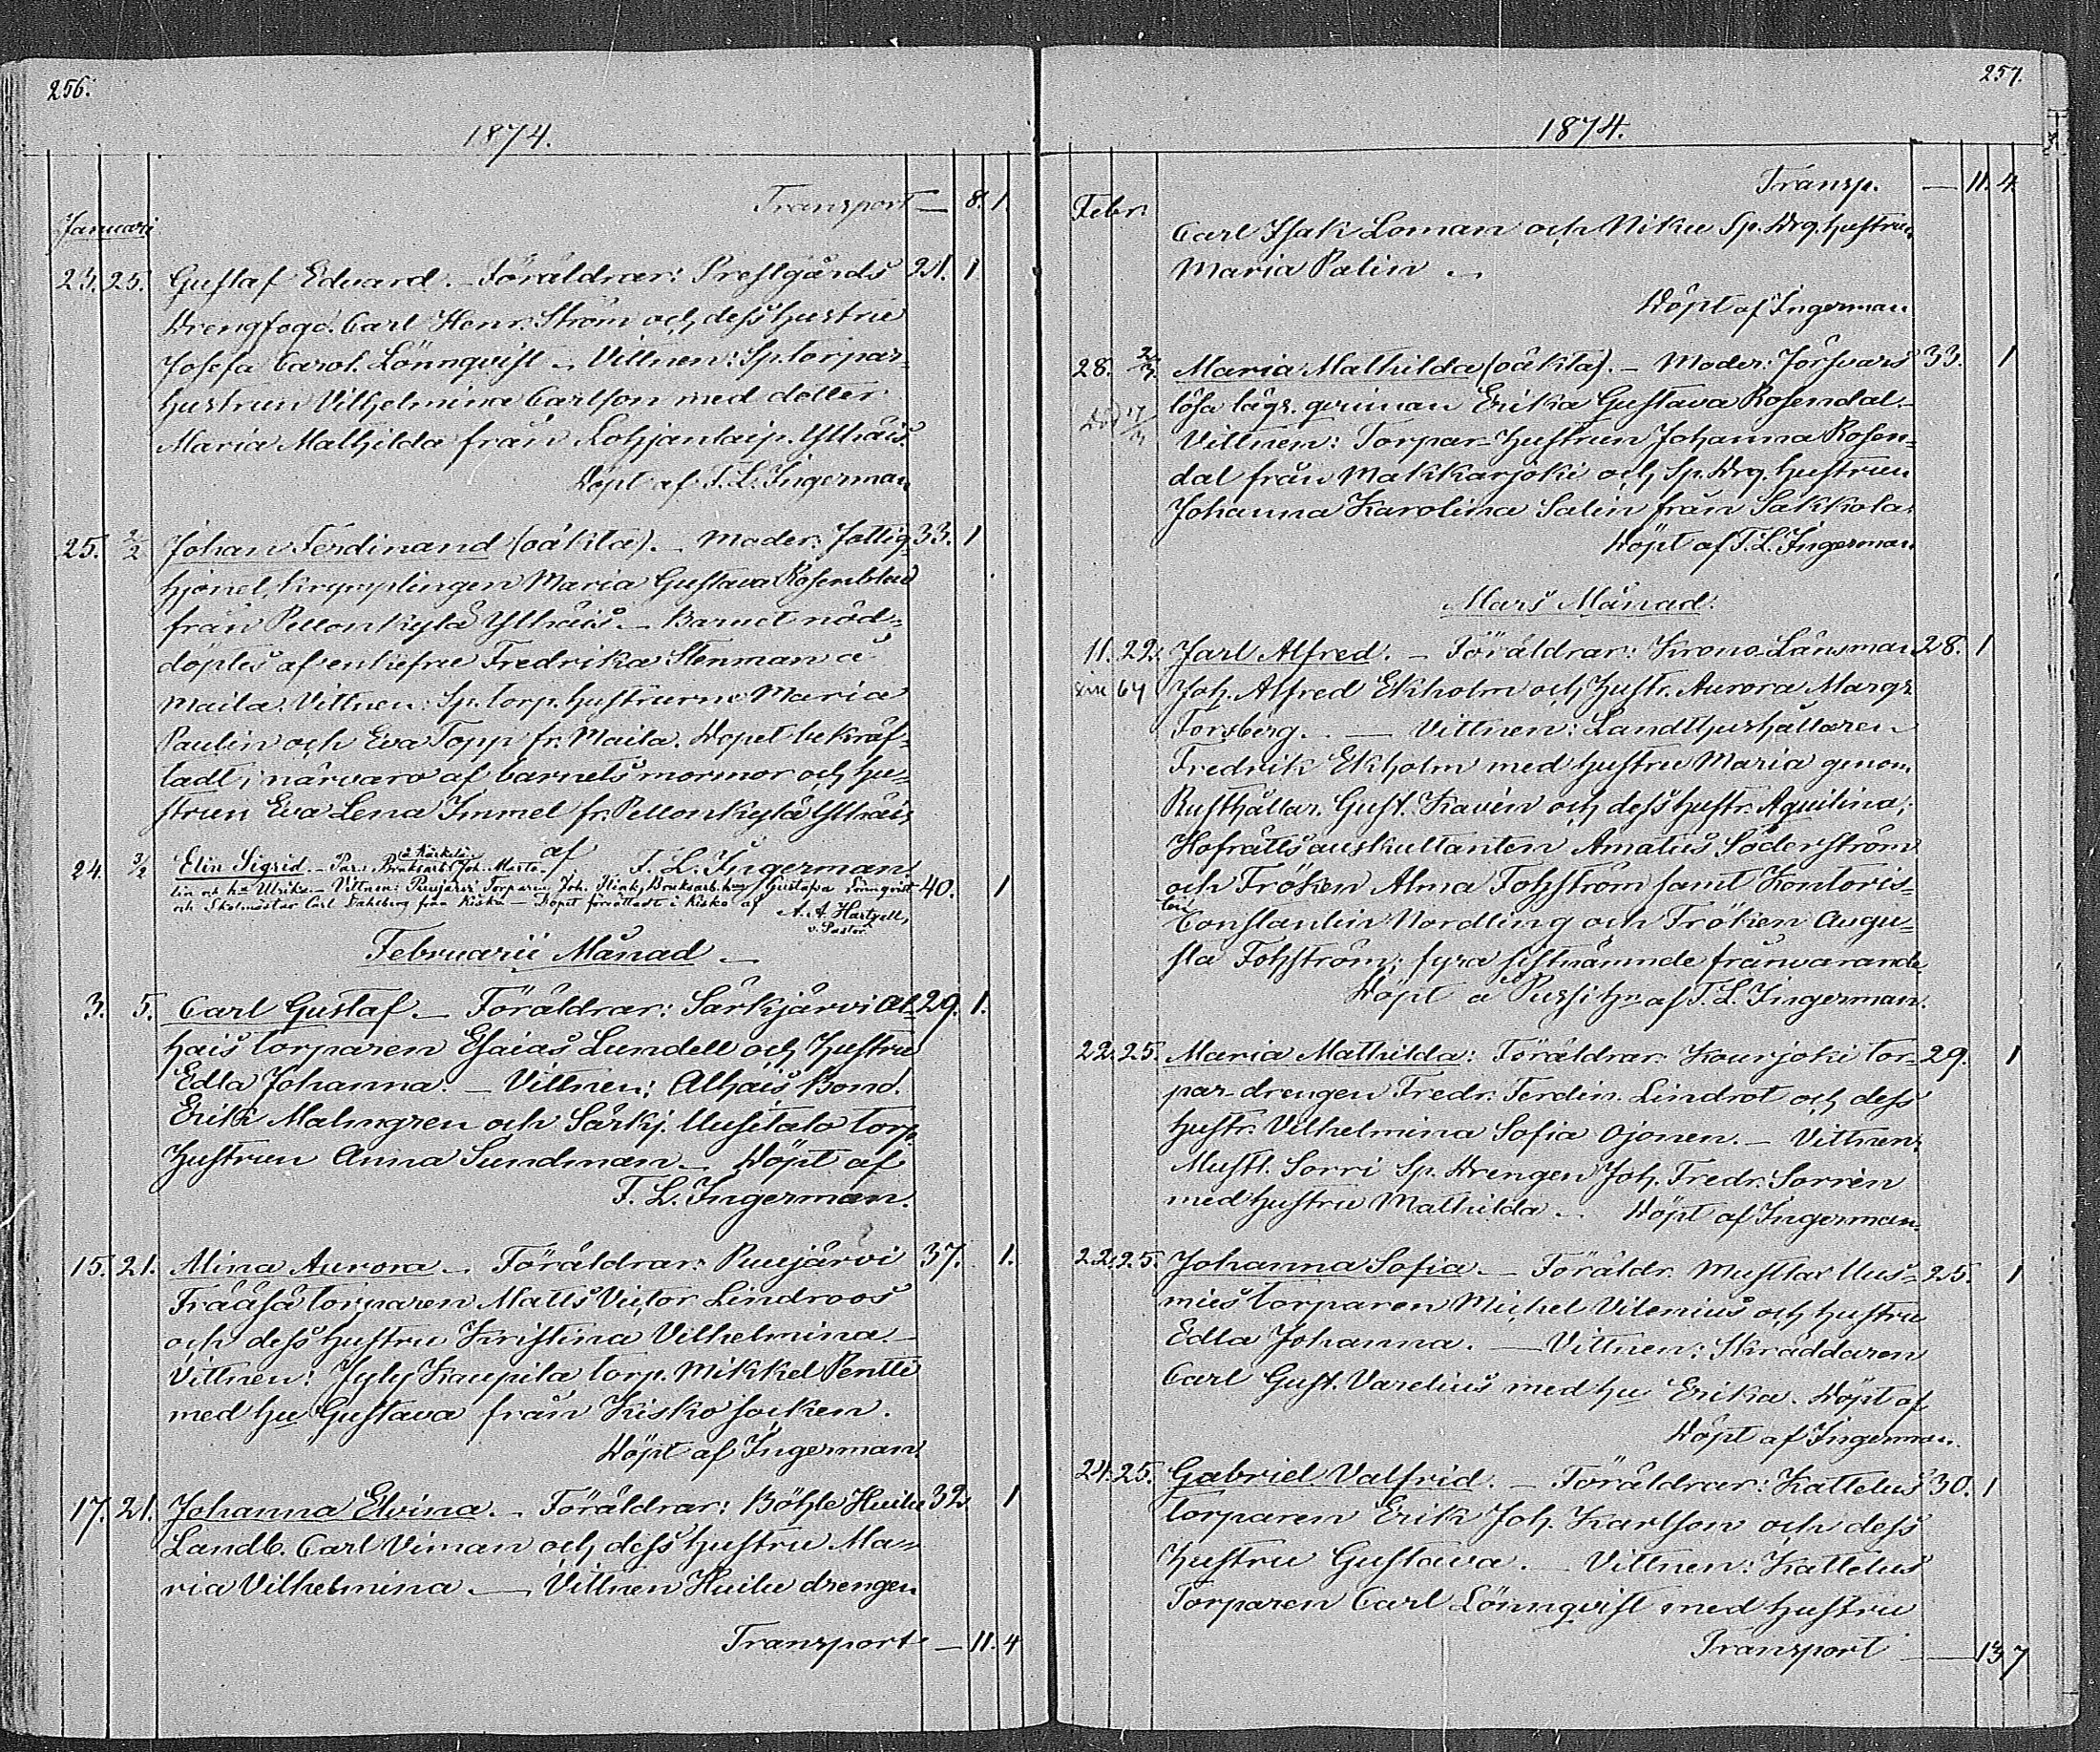 256.
1874.
Transport — 8. 1.
Januari
23. 25. Gustaf Edvard. – Föräldrar: Prestgårds 21. 1
Drengfogd. Carl Henr. Ström och dess hustru
Josefa Carol. Lönnqvist – Vittnen: Sp. torpar-
hustrun Vilhelmina Carlson med dotter
Maria Mathilda från Lohjantaip. Ylhäis.
Döpt af T. L. Ingerman
25. 2/2 Johan Ferdinand (oäkta). – Moder: Fattig- 33. 1
hjonet, krymplingen Maria Gustava Rosenblad
från Pellonkylä Ylhäis. – Barnet nöd-
döptes af enkefru Fredrika Stenman å
Maila. Vittnen: Sp. torp. hustrurne Maria
Paulin och Eva Topp fr. Maila. Dopet bekräf-
tadt i närvaro af barnets mormor och hu-
strun Eva Lena Immel fr. Pellonkylä Ylhäis
af T. L. Ingerman.
24. 3/2 Elin Sigrid. – Par: Bruksarb. Joh. Marte-
lin och hu Ulrika. – Vittnen: Ruujärvi Torparen Joh. Flink, Bruksarb. hu Gustafva Sörnqvist 40. 1
och Skolmästar Carl Dahlberg från Kisko – Dopet förrättadt i Kisko af A. A. Hartzell,
v. Pastor.
Februarii Månad –
3. 5. Carl Gustaf. – Föräldrar: Särkjärvi Al- 29. 1.
hais torparen Esaias Lundell och hustru
Edla Johanna. – Vittnen: Alhais Bond.
Erik Malmgren och Särkj. Uusitalo torp.
hustrun Anna Sundman. – Döpt af
T. L. Ingerman.
15. 21. Mina Aurora. – Föräldrar: Ruujärvi 37. 1.
Trääsä torparen Matts Victor Lindroos
och dess hustru Kristina Vilhelmina –
Vittnen: Jyly Kaupila torp. Mikkel Pentti
med hu Gustava från Kisko socken.
Döpt af Ingerman.
17. 21. Johanna Elvina. – Föräldrar: Böhle Huilu 32 1
Landb. Carl Viman och dess hustru Ma-
ria Vilhelmina. — Vittnen Huilu drengen
Transport — 11. 4
257.
1874.
Transp. — 11. 4
Febr.
Carl Isak Loman och Niku Sp. Drg. hustrun
Maria Palin –
Döpt af Ingerman
28. 2/3. Maria Mathilda (oäkta). – Moder: Försvars- 33. 1
Död 17/3 lösa lägr. qvinnan Erika Gustava Rosendal. –
Vittnen: Torpar-hustrun Johanna Rosen-
dal från Makkarjoki och Sp. Drg. hustrun
Johanna Karolina Salin från Sakkola.
Döpt af T. L. Ingerman.
Mars Månad.
11. 22. Jarl Alfred. – Föräldrar: Krono-Länsman 28. 1
64 Joh. Alfred Ekholm och hustr. Aurora Margr.
Forsberg. — Vittnen: Landthushållaren
Fredrik Ekholm med hustru Maria genom
Rusthållar. Gust. Kavén och dess hustr. Aqvilina;
Hofrätts auskultanten Amatus Söderström
och Fröken Alma Fohström samt Kontoris-
ten Constantin Nordling och Fröken Augu-
sta Fohström; fyra sistnämnde frånvarande.
Döpt å Pursi hn af T. L. Ingerman.
22. 25. Maria Mathilda: Föräldrar: Kourjoki tor- 29. 1
par-drengen Fredr. Ferdin. Lindrot och dess
hustr. Vilhelmina Sofia Ojonen. – Vittnen:
Mustl. Sorri Sp. Drengen Joh. Fredr. Sorrén
med hustru Mathilda. Döpt af Ingerman.
22. 25. Johanna Sofia. – Föräldr. Mustlax Uus- 25. 1
mies torparen Michel Vilenius och hustru
Edla Johanna. — Vittnen: Skräddaren
Carl Gust. Varelius med hu Erika. Döpt af
Döpt af Ingerman.
24. 25. Gabriel Valfrid. – Föräldrar: Kattelus 30. 1
torparen Erik Joh. Karlson och dess
hustru Gustava. – Vittnen: Kattelus
Torparen Carl Lönnqvist med hustru
Transport — 13 7